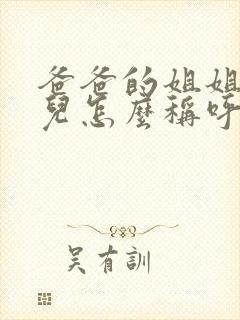 爸爸的姐姐
兒怎麼稱呼
吳有訓